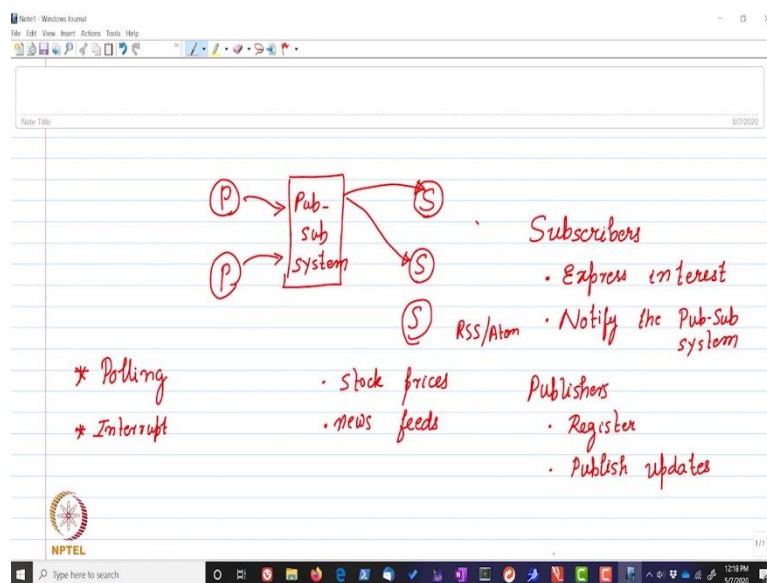 Note1 - Windows Journal
File Edit View Insert Actions Tools Help
Note Title
5/7/2020
P
Pub-
sub
system
S
P
S
S
RSS/Atom
Subscribers
· Express interest
· Notify the Pub-Sub
system
* Polling
* Interrupt
· stock prices
· news feeds
Publishers
· Register
· Publish updates
NPTEL
1/1
Type here to search
12:18 PM
5/7/2020